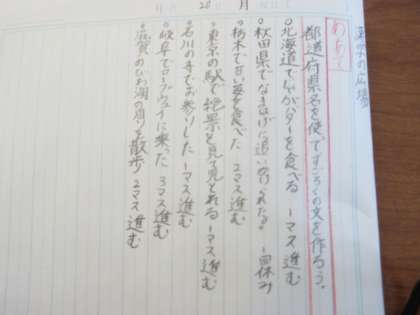 月
漢字の広場
めあて
都道府県名を使ってすごろくの文を作ろう。
○北海道でじゃがバターを食べる 1マス進む
○秋田県でなまはげに追いかけられたる。 一回休み
○栃木で甘い苺を食べた 2マス進む
○東京の駅で絶景を見て見とれる 1マス進む
○石川の寺でお参りした 1マス進む
○岐阜でロープウェイに乗った 3マス進む
○滋賀のびわ湖の周りを散歩 2マス進む